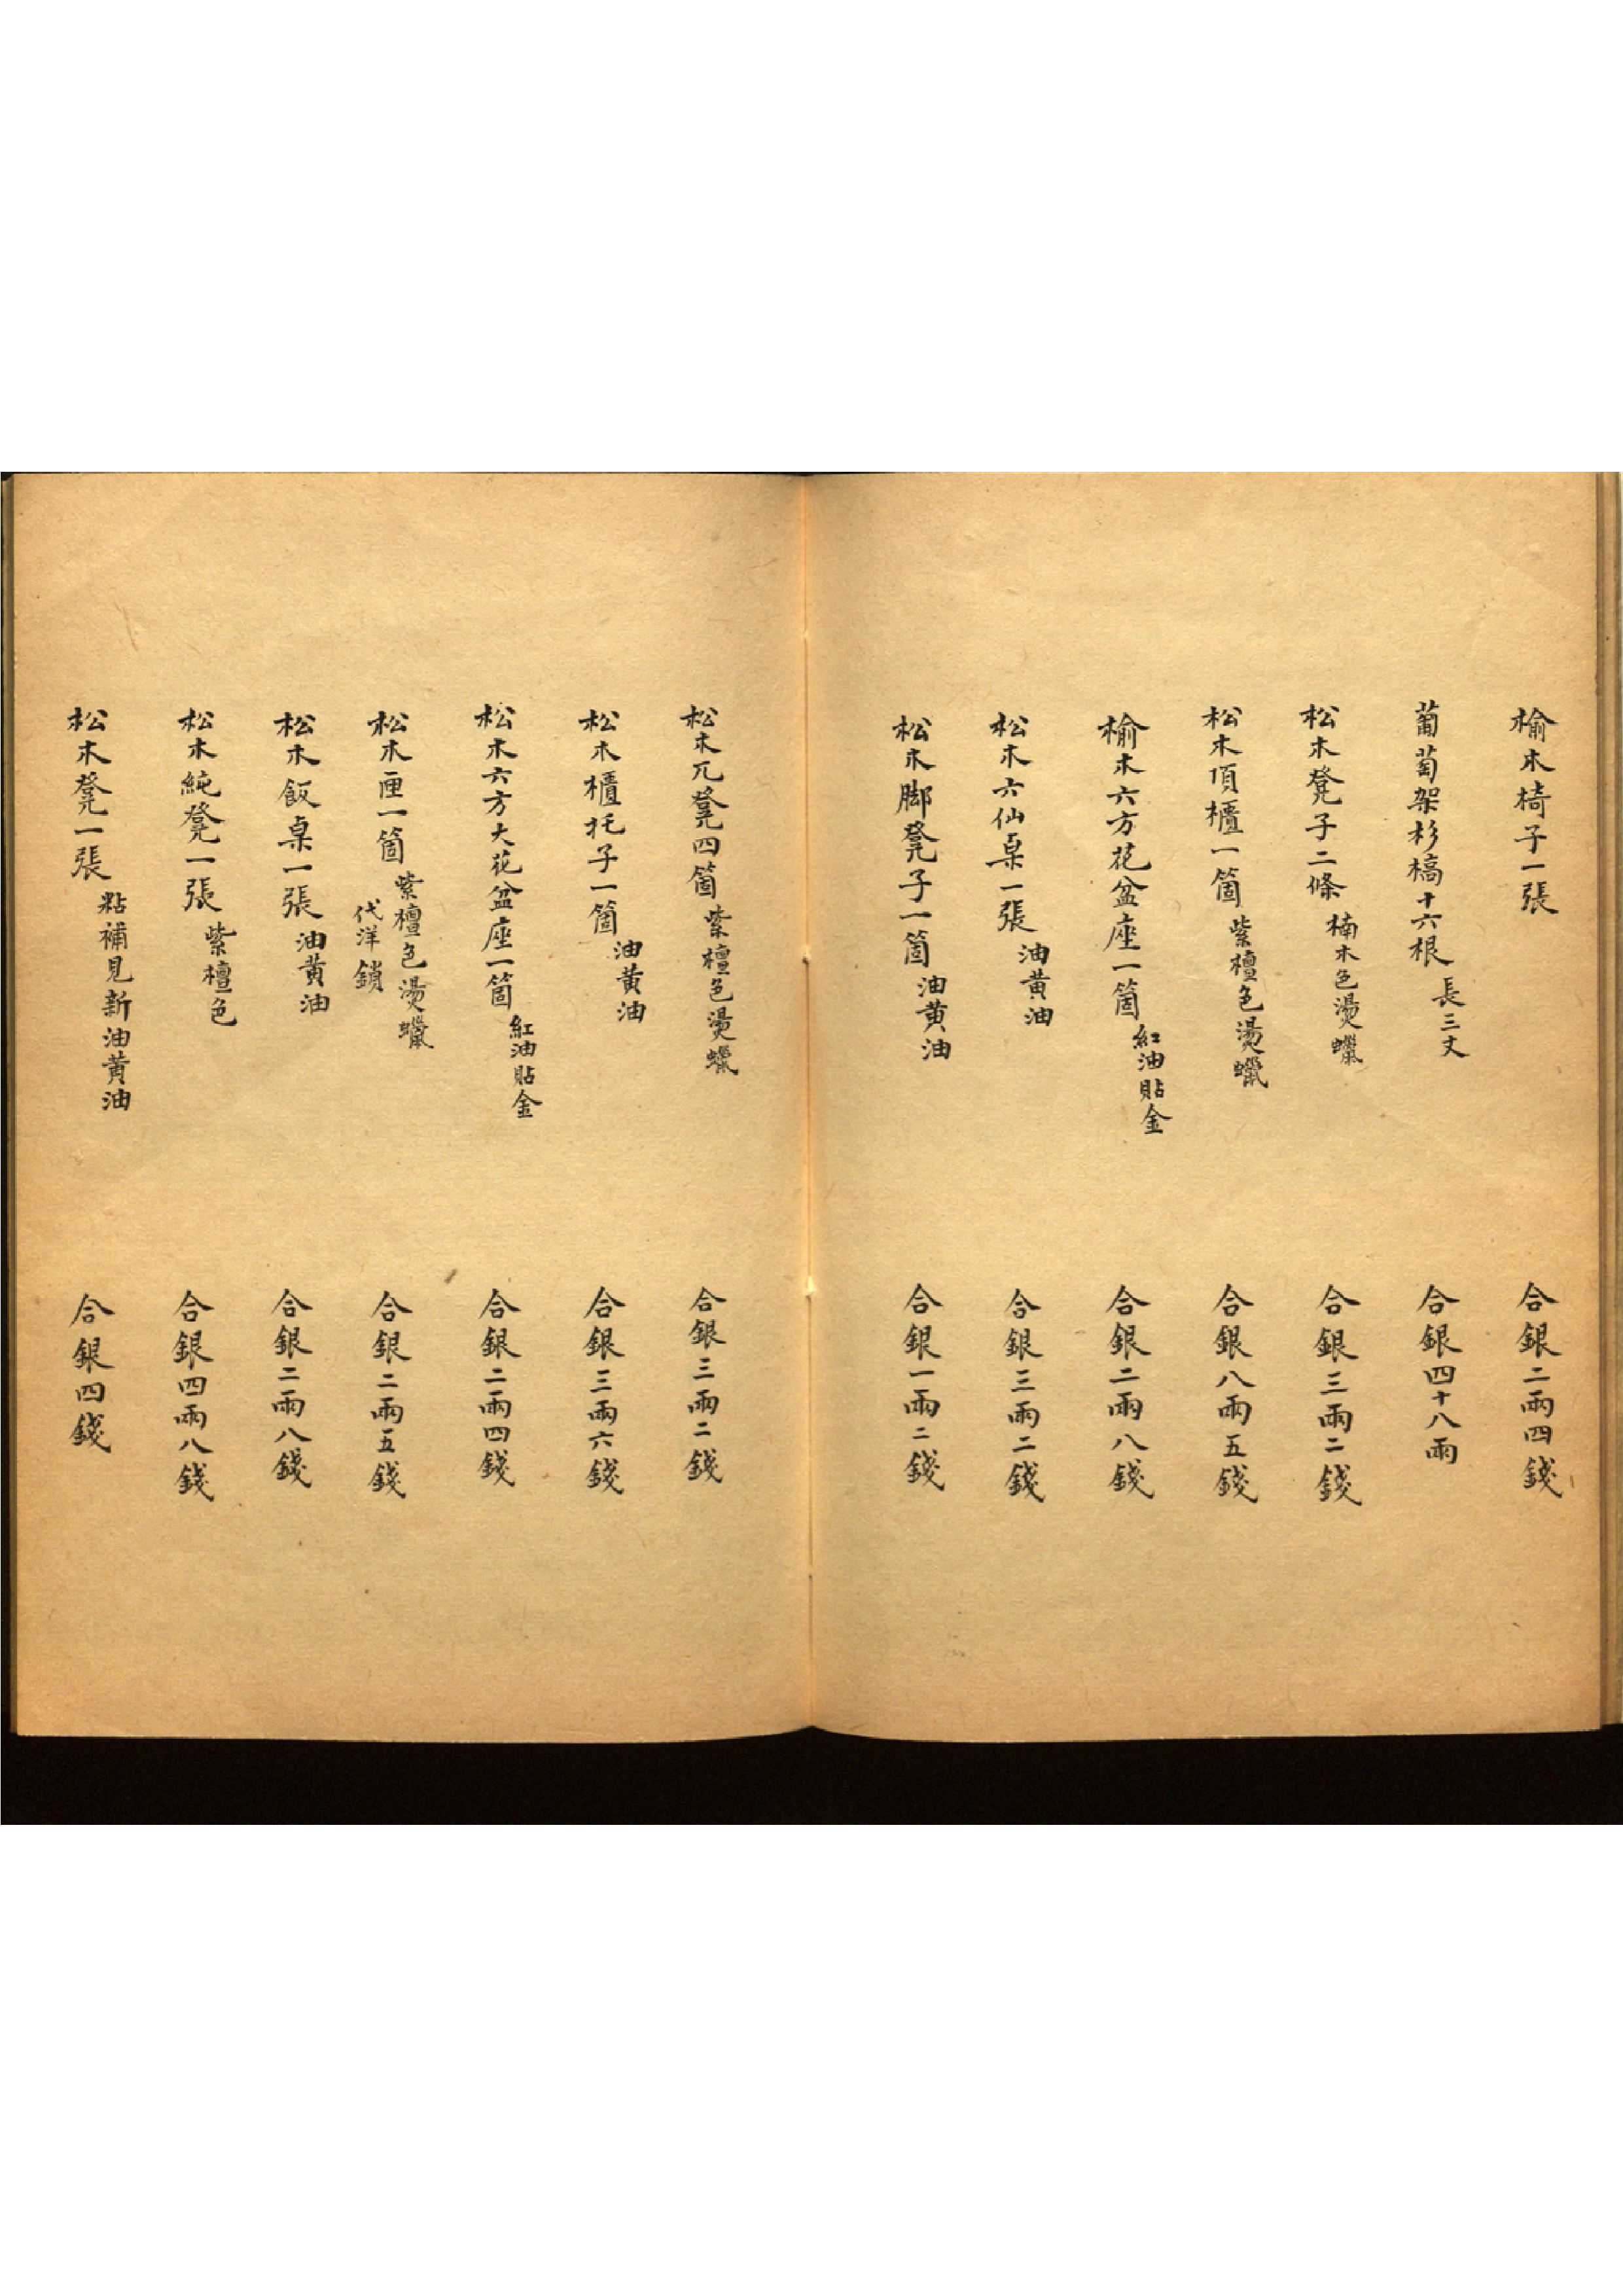 榆木椅子一張 合銀二兩四錢
葡萄架杉槁十六根 長三丈 合銀四十八兩
松木凳子二條 楠木色燙蠟 合銀三兩二錢
松木頂櫃一箇 紫檀色燙蠟 合銀八兩五錢
榆木六方花盆座一箇 紅油貼金 合銀二兩八錢
松木六仙桌一張 油黃油 合銀三兩二錢
松木脚凳子一箇 油黃油 合銀一兩二錢
松木兀凳四箇 紫檀色燙蠟 合銀三兩二錢
松木櫃托子一箇 油黃油 合銀三兩六錢
松木六方大花盆座一箇 紅油貼金 合銀二兩四錢
松木匣一箇 紫檀色燙蠟 代洋鎖 合銀二兩五錢
松木飯桌一張 油黃油 合銀二兩八錢
松木純凳一張 紫檀色 合銀四兩八錢
松木凳一張 粘補見新油黃油 合銀四錢